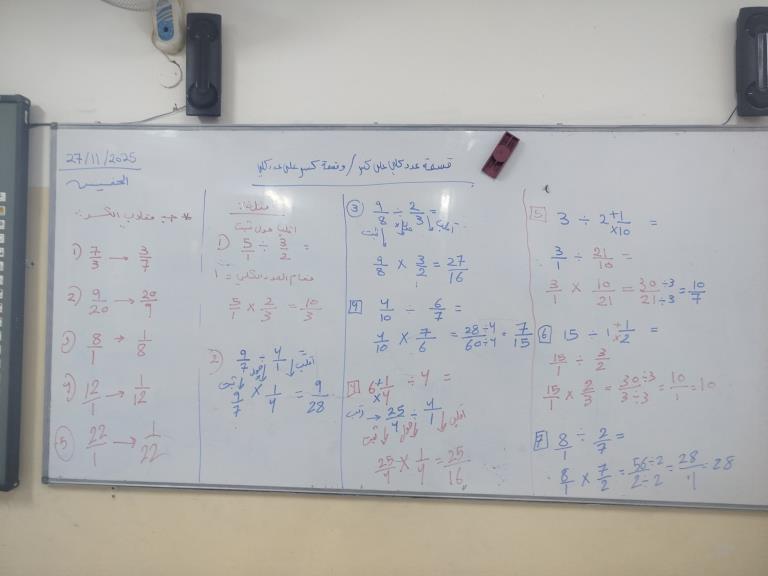 27/11/2025
الخميس
قسمة عدد كلي على كسر / وقسمة كسر على عدد كلي
* جد مقلوب الكسر:
1) 7/3 → 3/7
2) 9/20 → 20/9
3) 8/1 → 1/8
4) 12/1 → 1/12
5) 22/1 → 1/22
أمثلة:
اقلب حول ثبت
1) 5/1 ÷ 3/2 =
مقام العدد الكلي = 1
5/1 × 2/3 = 10/3
2) 9/7 ÷ 4/1 =
ثبت حول اقلب
9/7 × 1/4 = 9/28
3) 9/8 ÷ 2/3 =
ثبت حول اقلب
9/8 × 3/2 = 27/16
4) 4/10 ÷ 6/7 =
4/10 × 7/6 = 28÷4/60÷4 = 7/15
6 +1/×4 ÷ 4 =
ثبت → 25/4 ÷ 4/1 اقلب
ثبت حول
25/4 × 1/4 = 25/16
5 3 ÷ 2 +1/×10 =
3/1 ÷ 21/10 =
3/1 × 10/21 = 30÷3/21÷3 = 10/7
6 15 ÷ 1 +1/×2 =
15/1 ÷ 3/2
15/1 × 2/3 = 30÷3/3÷3 = 10/1 = 10
7 8/1 ÷ 2/7 =
8/1 × 7/2 = 56÷2/2÷2 = 28/1 = 28